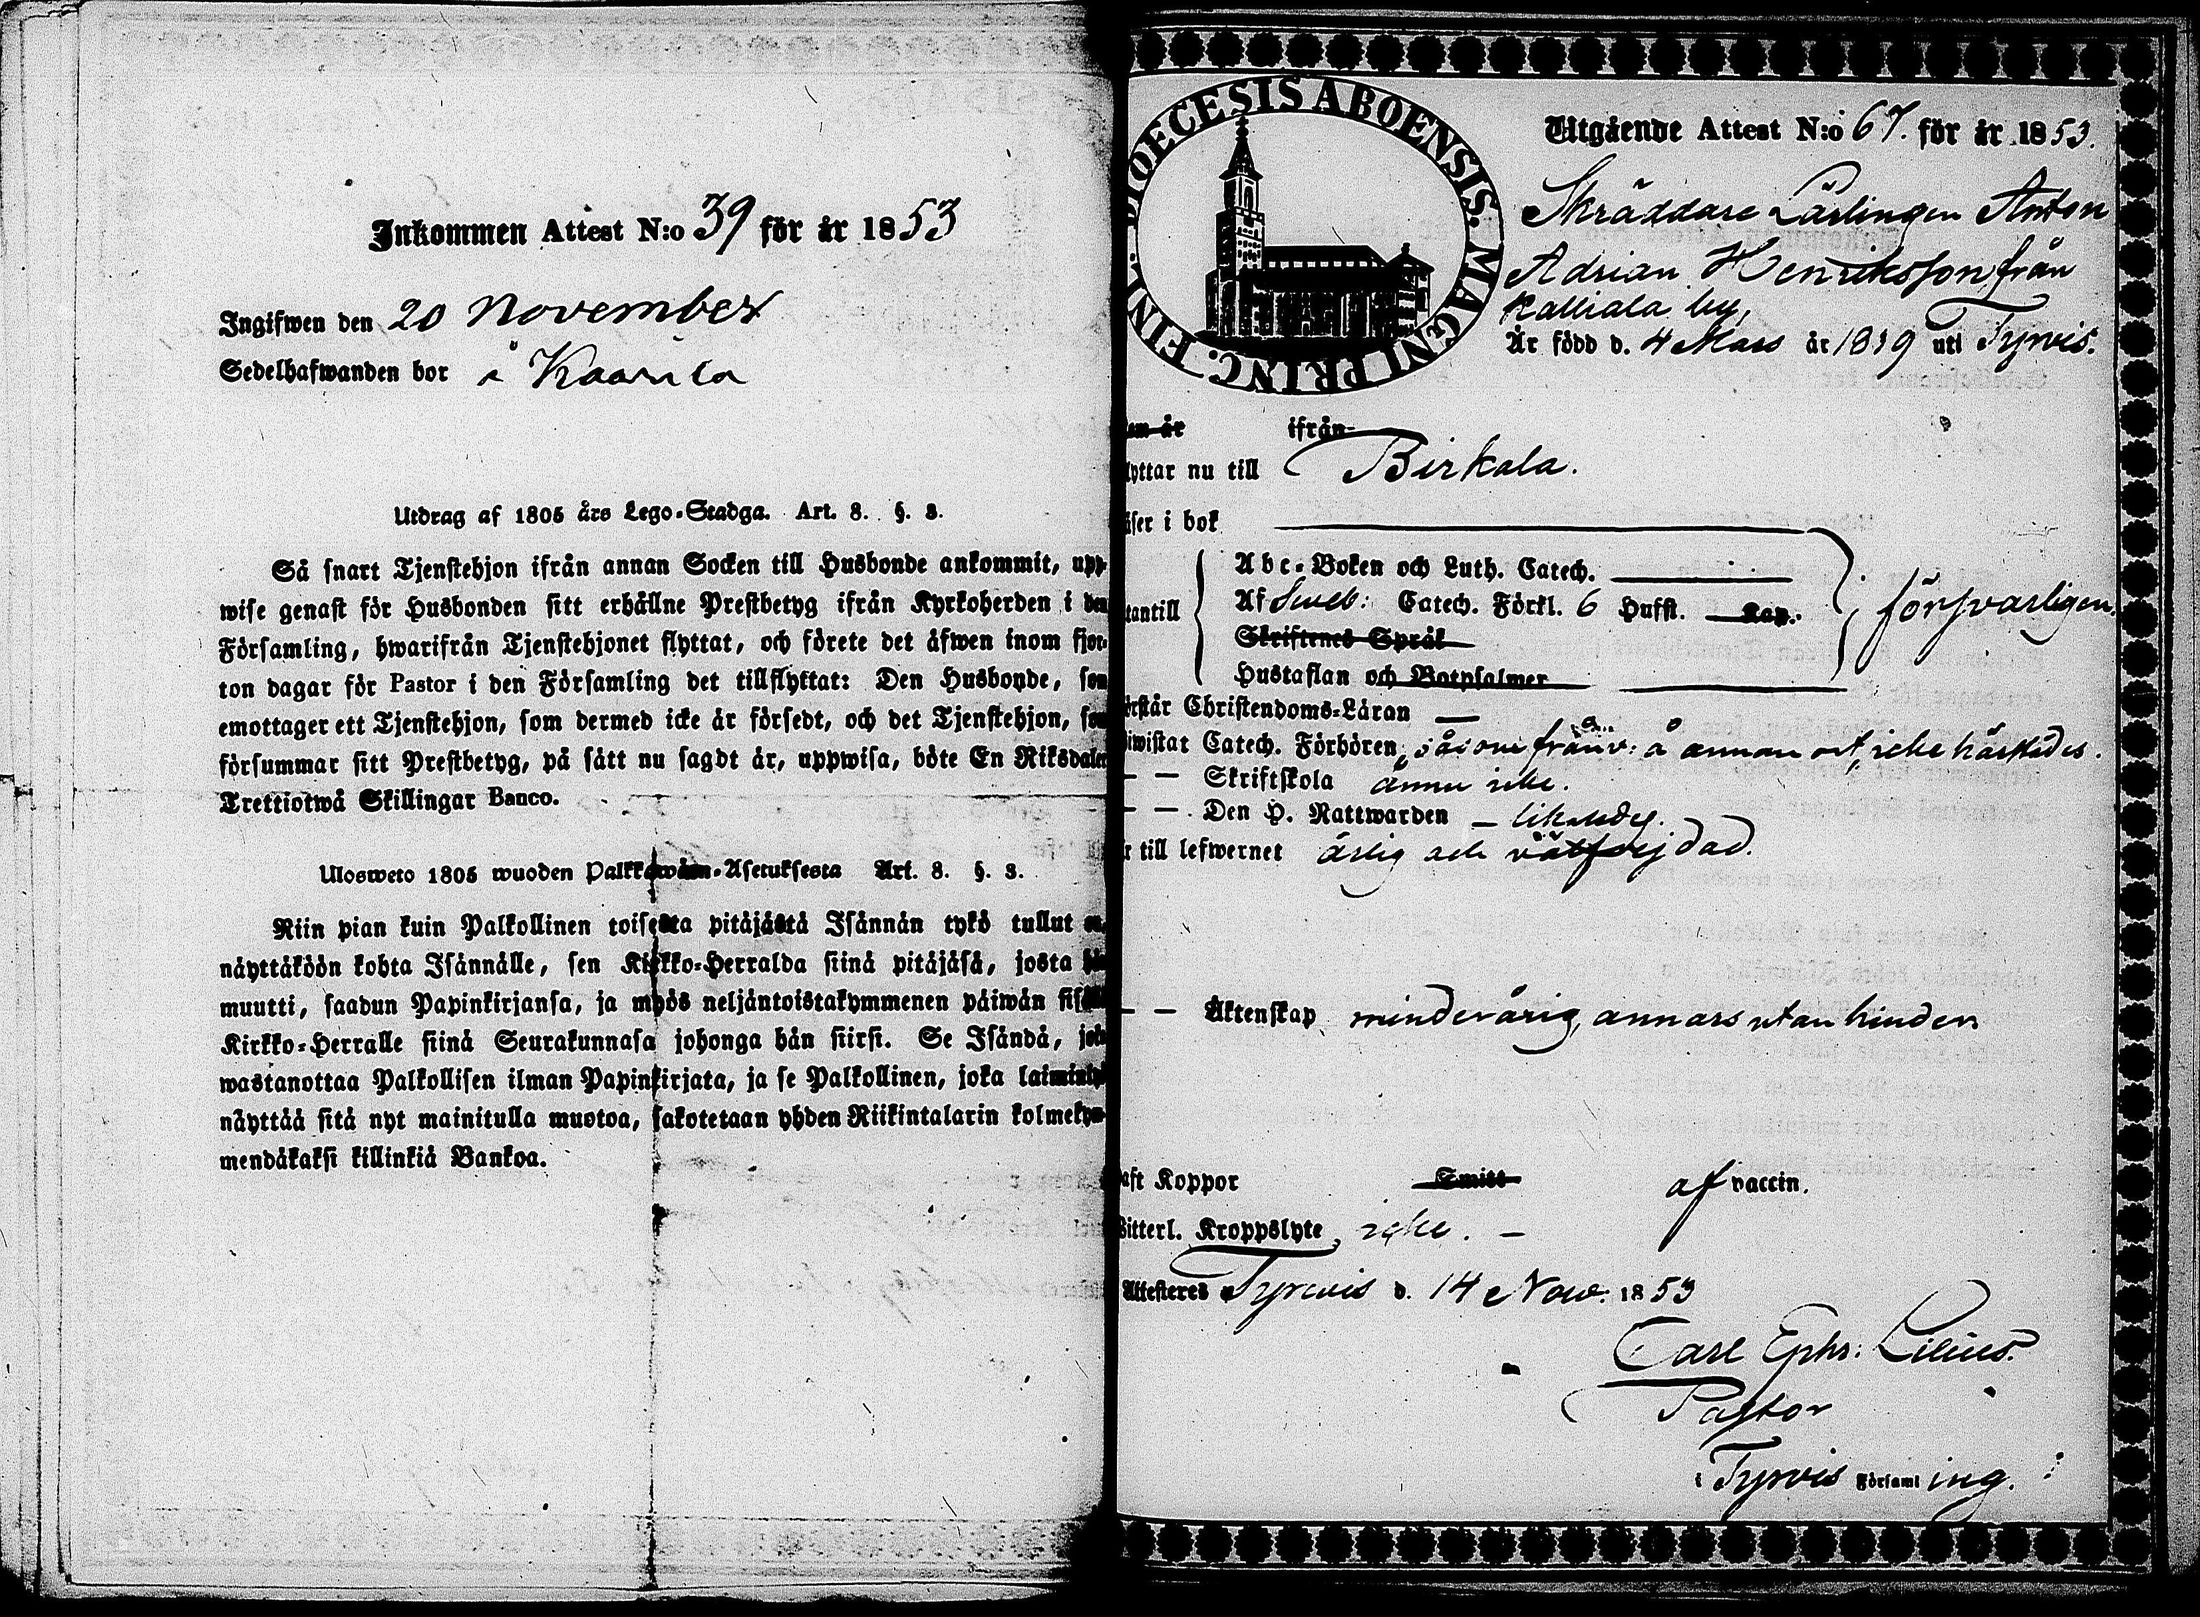 Inkommen Attest N:o 39 för år 1853
Ingifwen den 20 November
Sedelhafwanden bor å Kaarila
Utdrag af 1805 års Lego-Stadga. Art. 8. §. 3.
Så snart Tjenstehjon ifrån annan Socken till Husbonde ankommit, upp-
wise genast för Husbonden sitt erhållne Prestbetyg ifrån Kyrkoherden i den
Församling, hwarifrån Tjenstehjonet flyttat, och förete det äfwen inom fjor-
ton dagar för Pastor i den Församling det tillflyttat: Den Husbonde, som
emottager ett Tjenstehjon, som dermed icke är försedt, och det Tjenstehjon, som
försummar sitt Prestbetyg, på sätt nu sagdt är, uppwisa, böte En Riksdaler
Trettiotwå Skillingar Banco.
Ulosweto 1805 wuoden Palkkawäen-Asetuksesta Art. 8. §. 3.
Niin pian kuin Palkollinen toisesta pitäjästä Isännän tykö tullut on,
näyttäköön kohta Isännälle, sen Kirkko-Herralda siinä pitäjäsä, josta hän
muutti, saadun Papinkirjansa, ja myös neljäntoistakymmenen päiwän sisällä
Kirkko-Herralle siinä Seurakunnasa johonga hän siirsi. Se Isändä, joka
wastanottaa Palkollisen ilman Papinkirjata, ja se Palkollinen, joka laiminlyö
näyttää sitä nyt mainitulla muotoa, sakotetaan yhden Riikintalarin kolmekym-
mendäkaksi killinkiä Bankoa.
DIOECESIS ABOENSIS. MAGNI PRINC. FINL.
Utgående Attest N:o 67. för år 1853.
Skräddare Lärlingen Anton
Adrian Henriksson från
Kalliala by,
Är född d. 4 Mars år 1839 uti Tyrvis.
är ifrån
lyttar nu till Birkala.
äser i bok
tantill Abc-Boken och Luth. Catech.
Af Sweb: Catech. Förkl. 6 Hufst. Kap. försvarligen
Skriftenes Språk
Hustaflan och Botpsalmer
örstår Christendoms-Läran
iwistat Catech. Förhören såsom frånv: å annan ort, icke
— — Skriftskola ännu icke.
— — Den H. Nattwarden — likaledes.
r till lefwernet ärlig och välfrejdad.
— — Äktenskap minderårig, annars utan hinder
aft Koppor Smitt af vaccin.
Bitterl. Kroppslyte icke. —
Attesteres Tyrwis d. 14 Now: 1853
Carl Ephr: Lilius.
Pastor
i Tyrvis Församling.